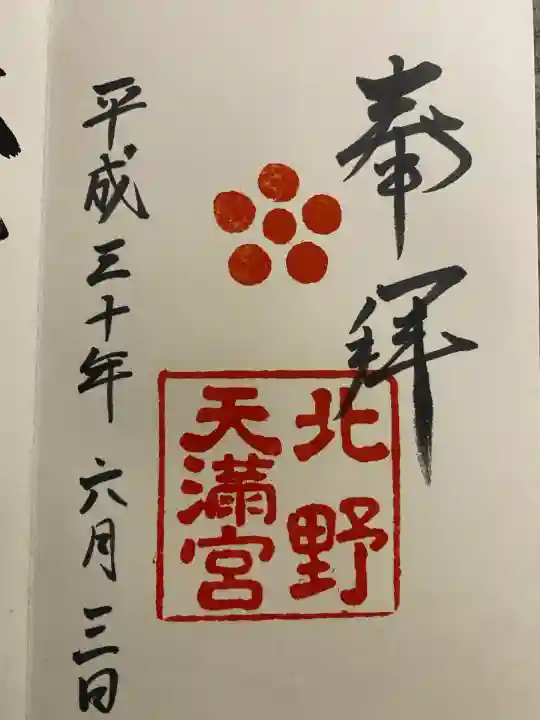 奉拝
北野
天満宮
平成三十年六月三日